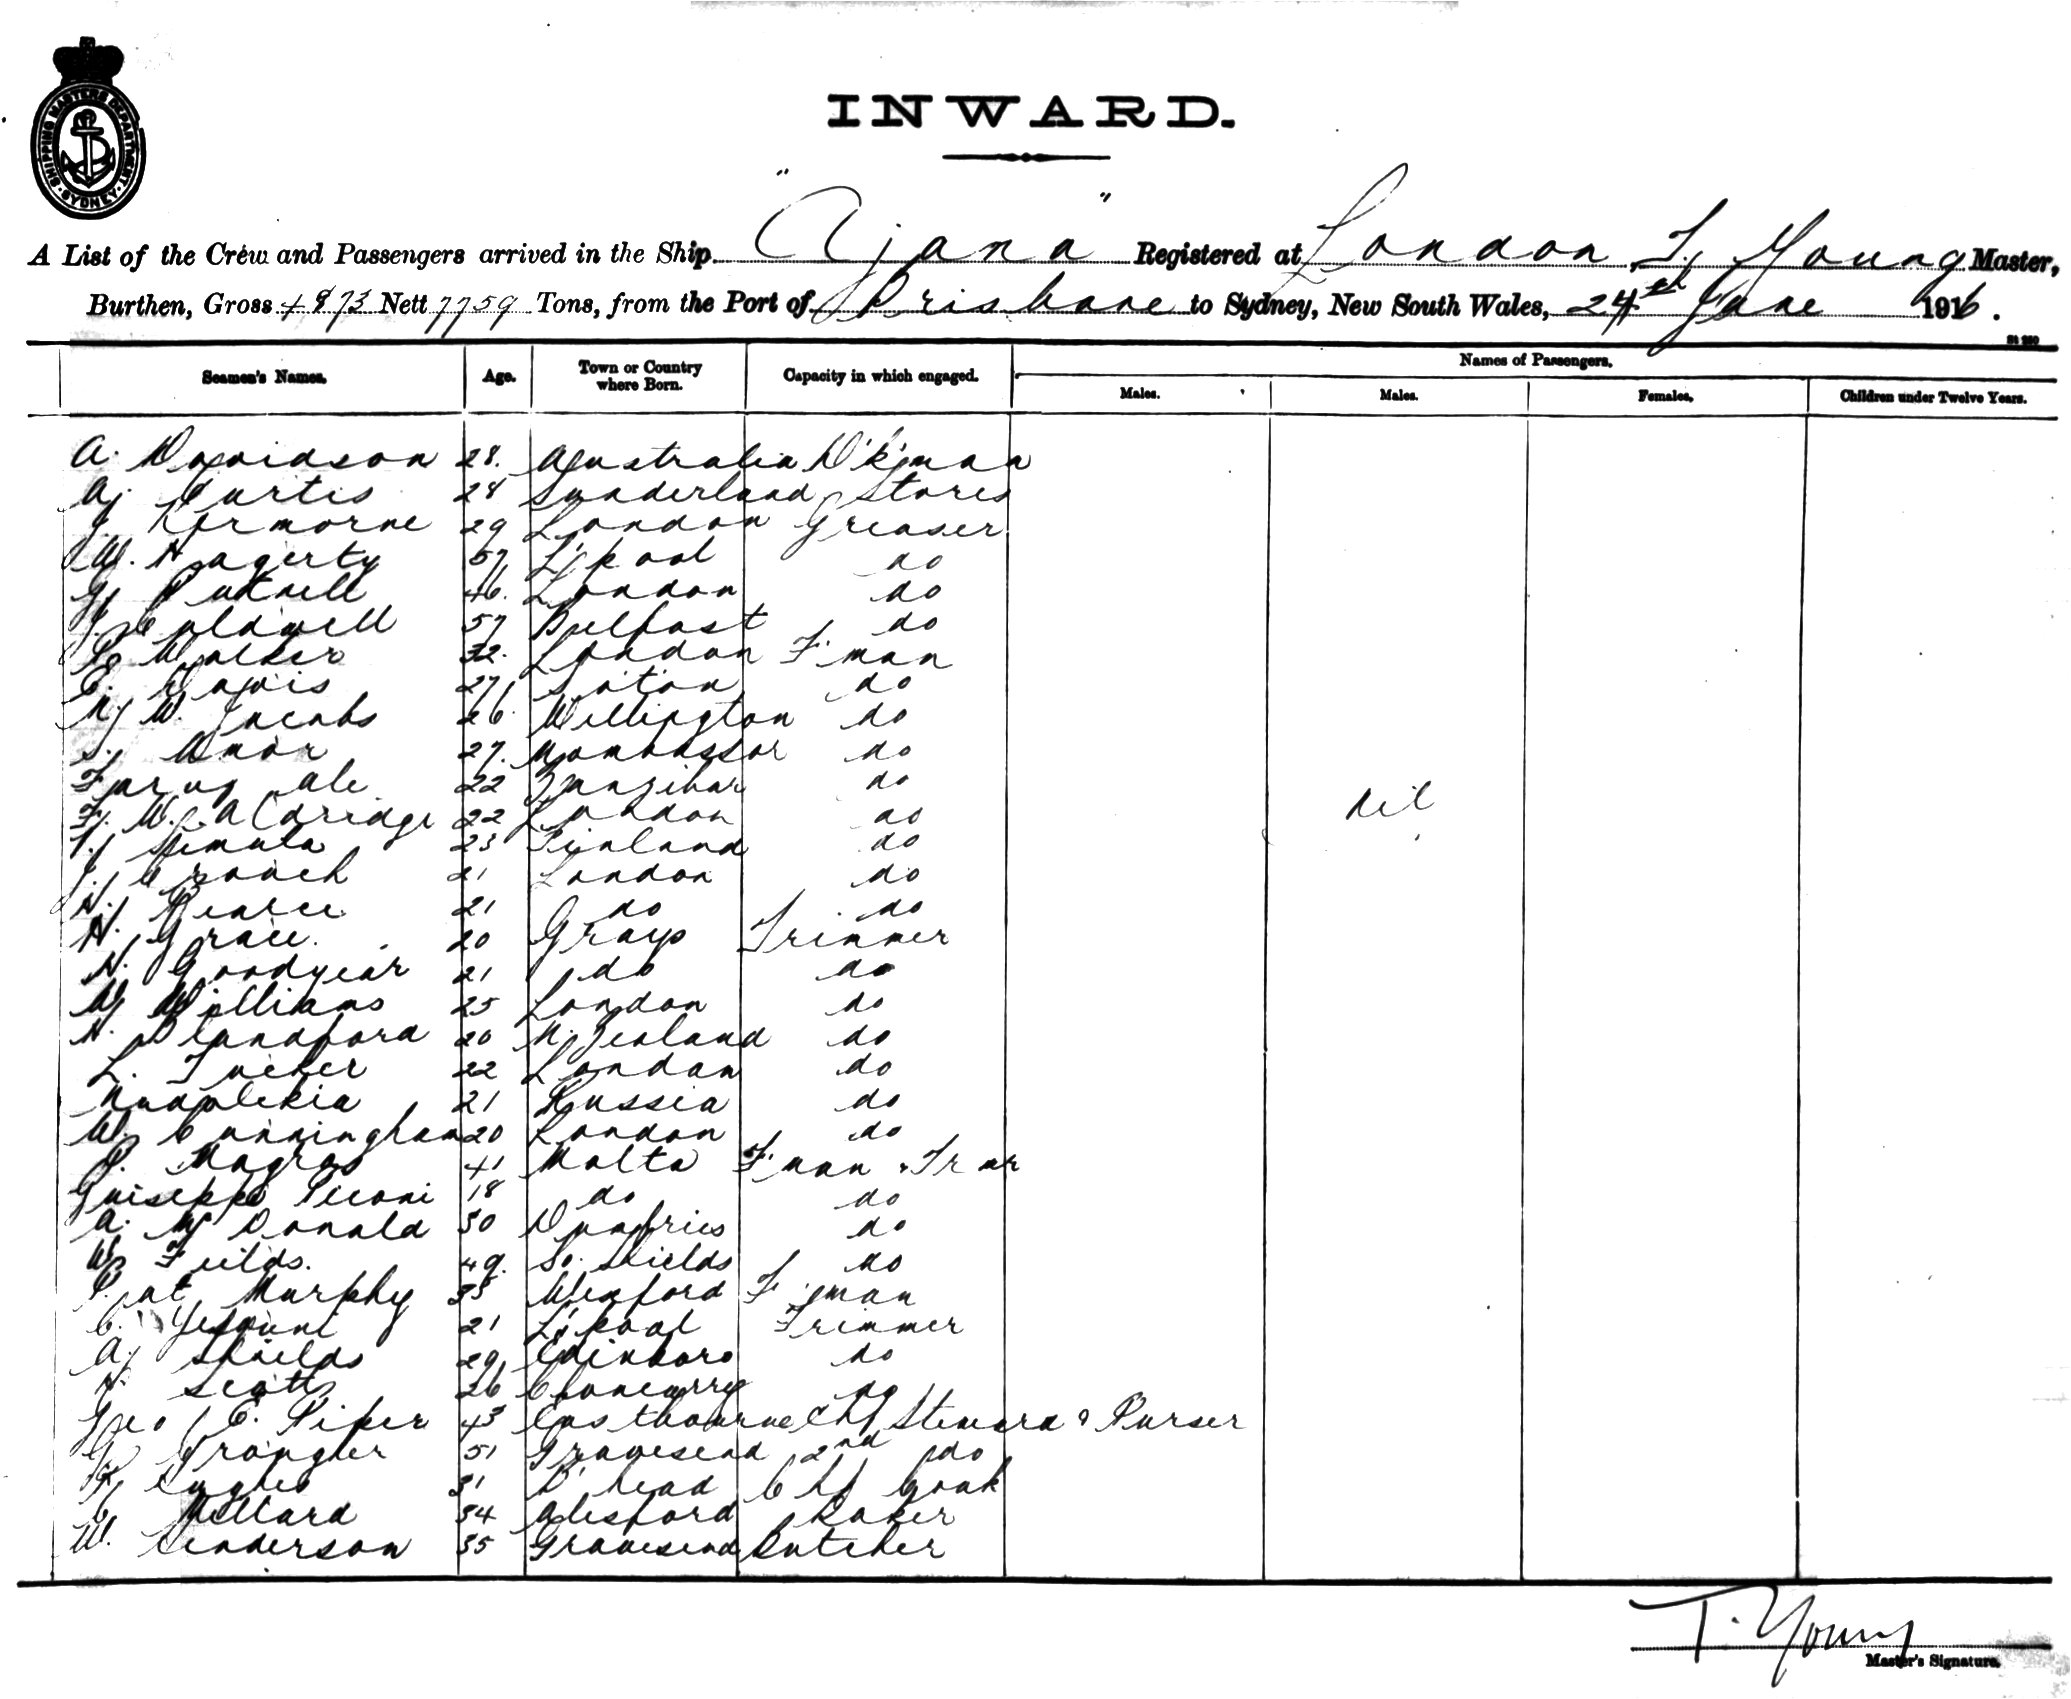 SHIPPING MASTERS DEPARTMENT. SYDNEY.
INWARD.
A List of the Crew and Passengers arrived in the Ship "Ajana" Registered at London, T. Young Master,
Burthen, Gross Nett 7759 Tons, from the Port of Brisbane to Sydney, New South Wales, 24th June 1916.
Seamen's Names. Age. Town or Country where Born. Capacity in which engaged. Names of Passengers.
Males. Males. Females. Children under Twelve Years.
A. Davidson 28. Australia D'k'man
A. Curtis 28 Sunderland Stores
29 London Greaser
W. Hagerty 57 L'pool do
46. London do
J. Caldwell 57 Belfast do
Walker 32. London F'man
E. Davis 27 S'oton do
W. Jacobs 26. Wellington do
S. Omar 27. do
Farug Ale 22 Zanzibar do
F. W. Aldridge 22 London do
23 Finland do
J. Crouch 21 London do
H. Pearce 21 do do
H. Grace. 20 Grays Trimmer
H. Goodyear 21 do do
W. Williams 25 London do
H. Blandford 20 N. Zealand do
L. Tucker 22 London do
21 Russia do
W. Cunningham 20 London do
P. Magras 41 Malta F'man & Tr'mr
Guiseppe 18 do do
A. McDonald 50 Dumfries do
W. Feilds. 49. So. Shields do
Pat Murphy 35 Wexford F'man
C. 21 L'pool Trimmer
A. Shields 29 Edinboro do
H. Scott 26 Cloncurry do
Geo E. Piper 43 Eastbourne Chf Steward & Purser
G. 51 Gravesend 2nd do
Hughes 31 B'head Chf Cook
C. Millard 34 Alesford Baker
W. Henderson 35 Gravesend Butcher
Nil
T. Young
Master's Signature.